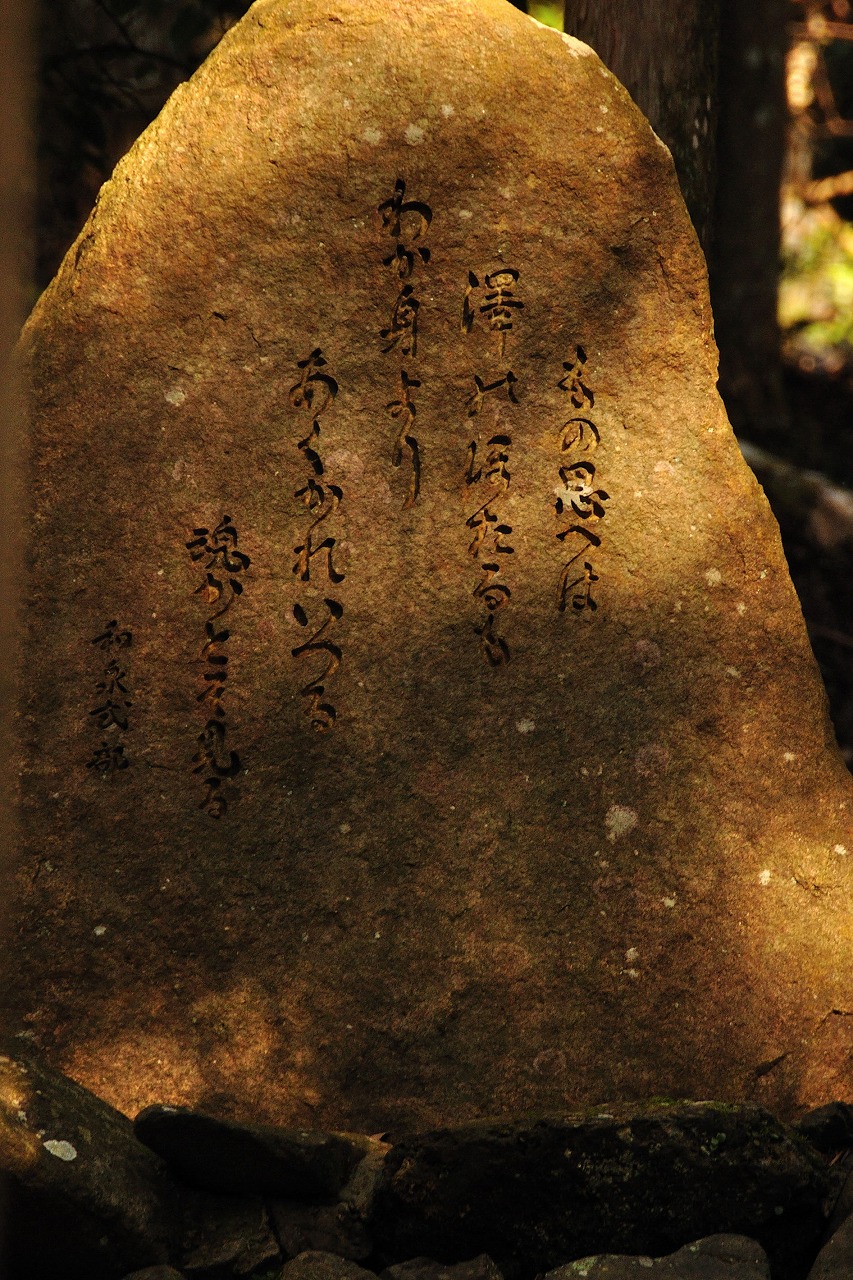 もの思へは
澤のほたるも
わか身より
あくかれいつる
魂かとそ見る
和泉式部